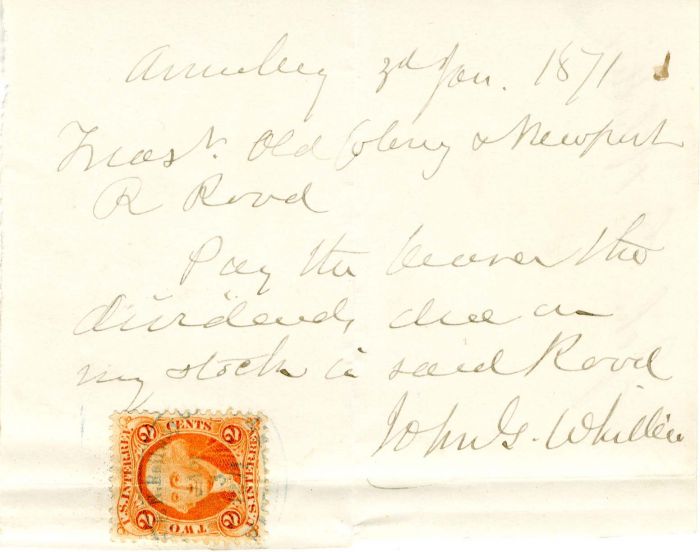 3d Jan. 1871
Treasr. Old Colony & Newport
R Road
Pay the bearer the
dividends due on
my stock in said Road
John G. Whittier
2 CENTS 2
U.S. INTER. REV. U.S. INTER. REV.
2 TWO 2